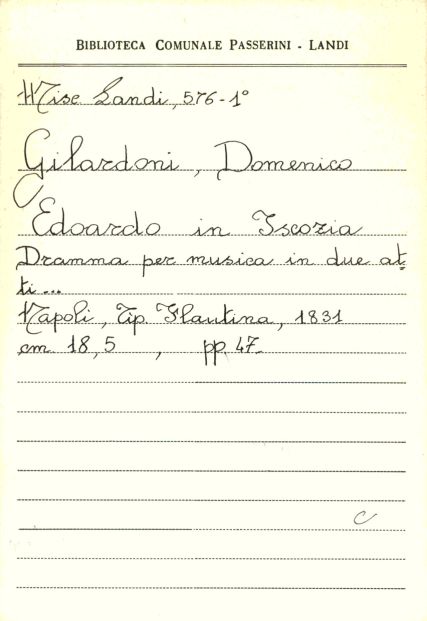 BIBLIOTECA COMUNALE PASSERINI - LANDI
Misc Landi, 576-1°
Gilardoni, Domenico
Edoardo in Iscozia
Dramma per musica in due at-
ti...
Napoli, Tip. Flautina, 1831
cm 18,5, pp. 47.
C